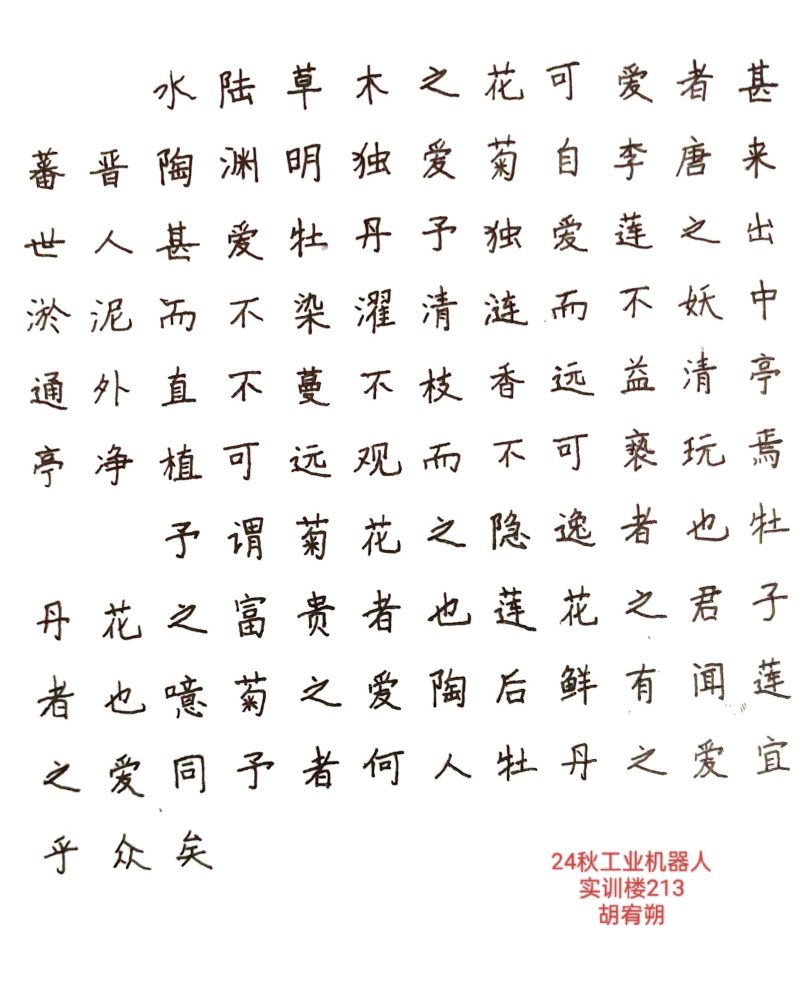 水陆草木之花可爱者甚
蕃晋陶渊明独爱菊自李唐来
世人甚爱牡丹予独爱莲之出
淤泥而不染濯清涟而不妖中
通外直不蔓不枝香远益清亭
亭净植可远观而不可亵玩焉
予谓菊花之隐逸者也牡
丹花之富贵者也莲花之君子
者也噫菊之爱陶后鲜有闻莲
之爱同予者何人牡丹之爱宜
乎众矣
24秋工业机器人
实训楼213
胡宥朔